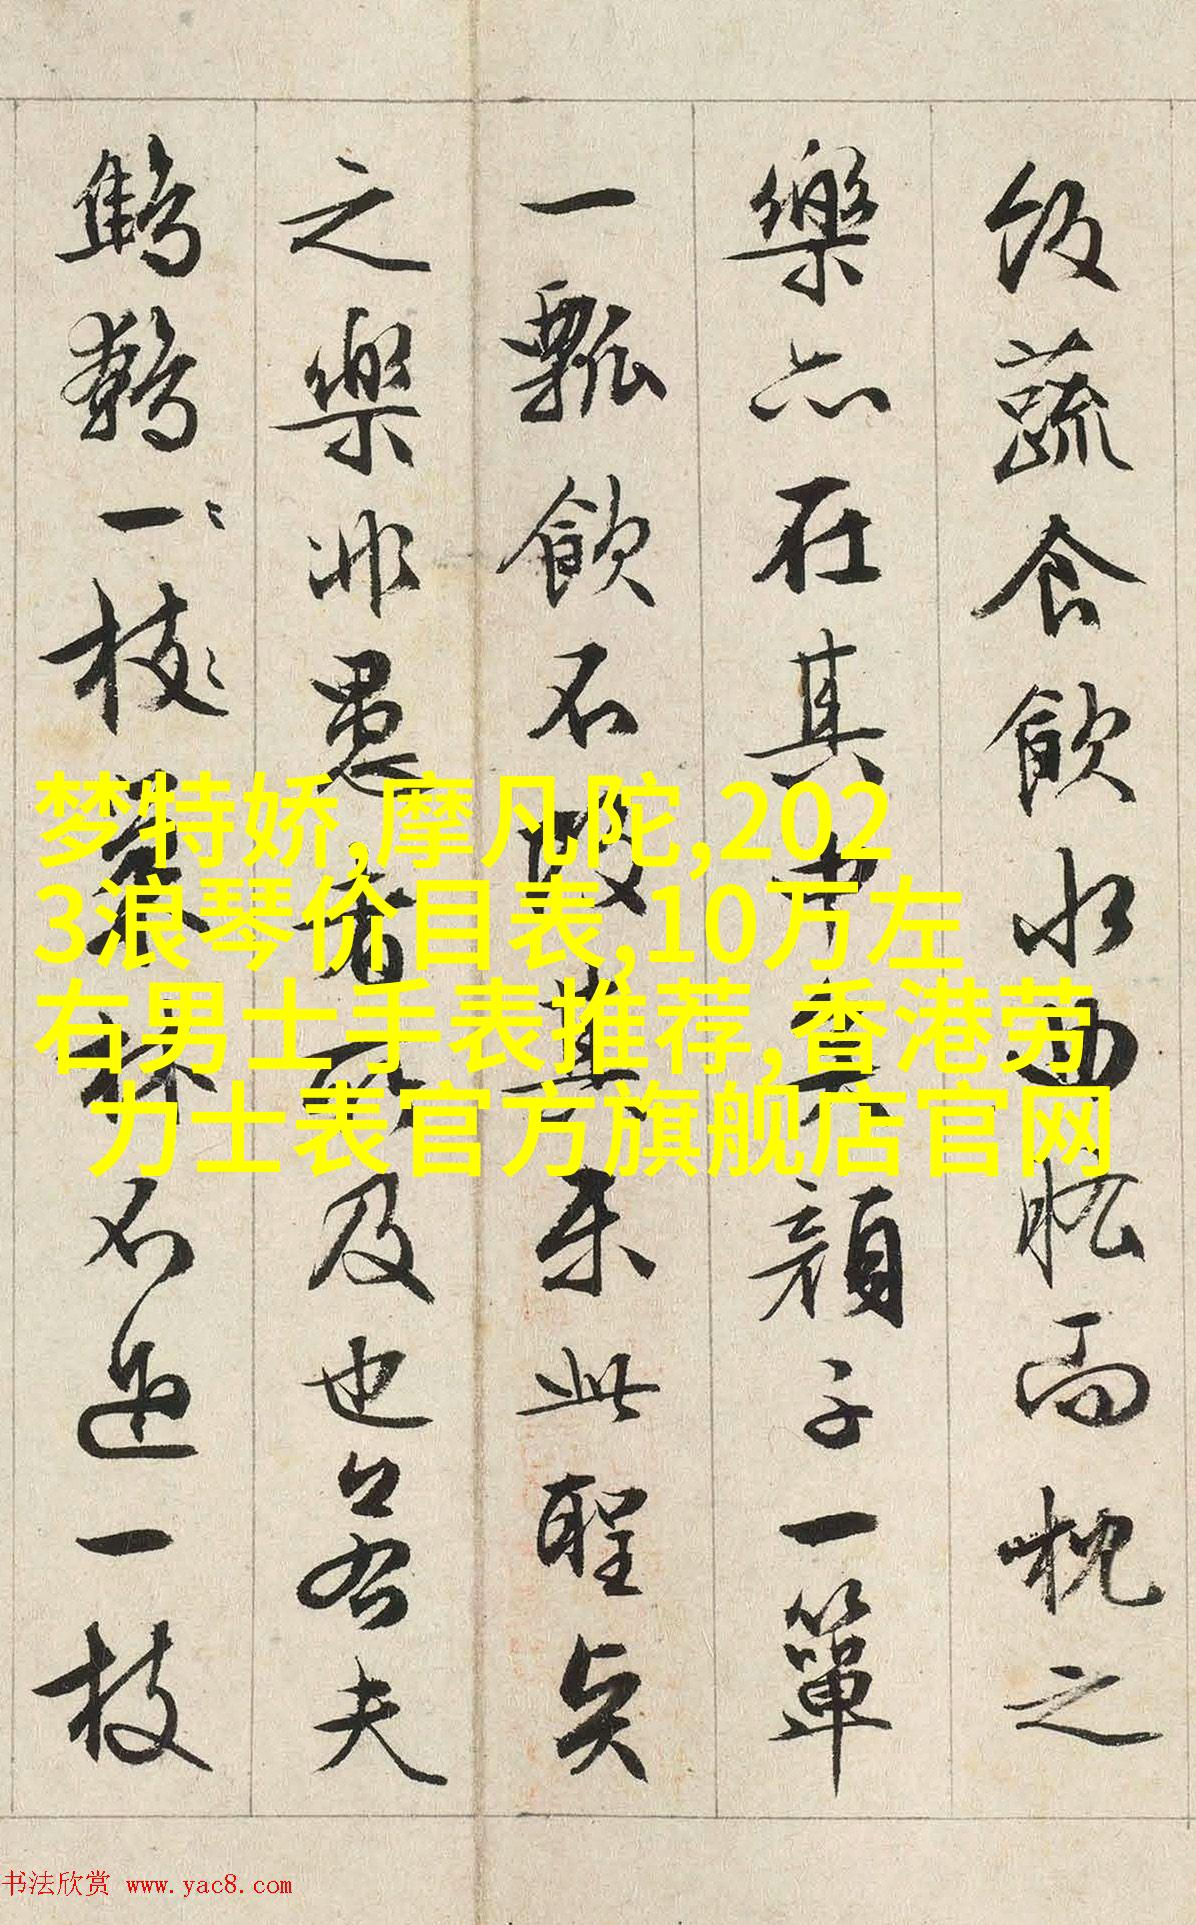 飯蔬食飲水曲肱而枕之
樂亦在其中矣顏子一簞
一瓢飲不改其樂此聖賢
之樂非愚者所及也若夫
鷦鷯一枝巢林不過一枝
梦特娇,摩凡陀,202
3浪琴价目表,10万左
右男士手表推荐,香港劳
力士表官方旗舰店官网
书法欣赏 www.yac8.com